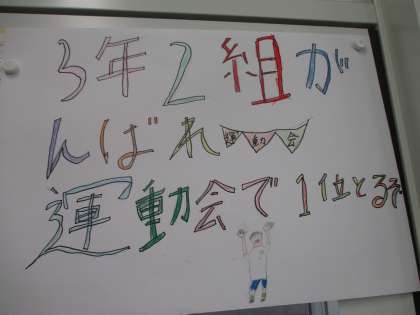 3年2組が
んばれ 運動会
運動会で1位とるぞ